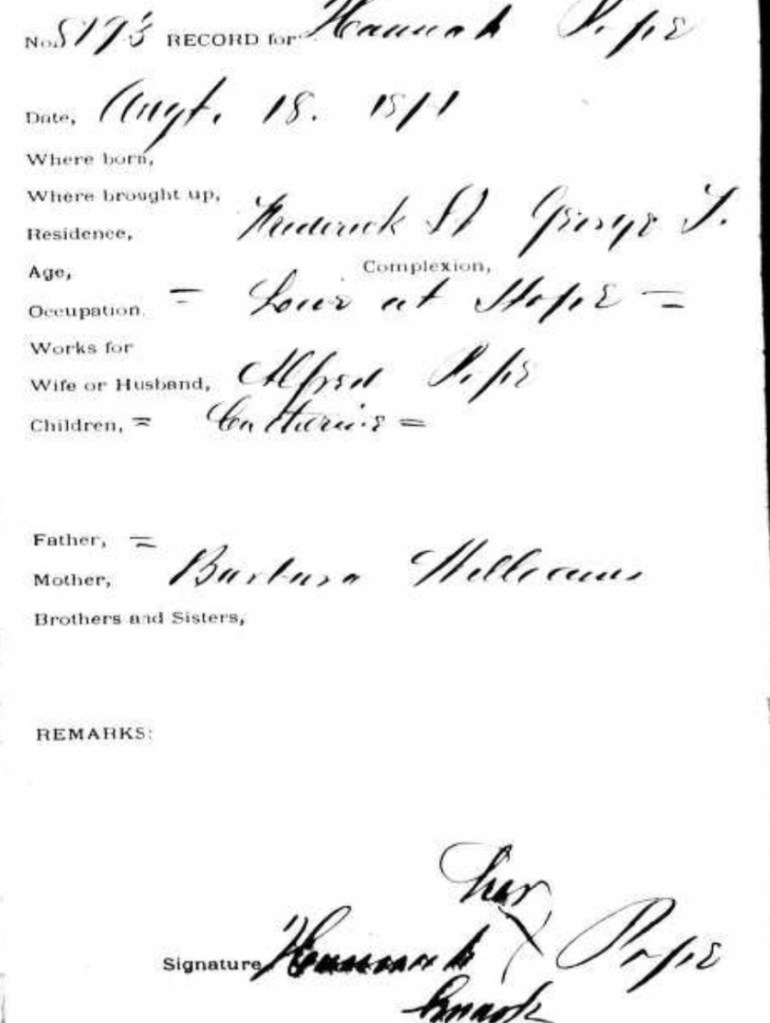 No. 5173 RECORD for Hannah Pope
Date, Augt. 18. 1871
Where born,
Where brought up,
Residence, Frederick St George T.
Age, Complexion,
Occupation, = at Home =
Works for
Wife or Husband, Alfred Pope
Children, = Catherine =
Father, =
Mother, Barbara Williams
Brothers and Sisters,
REMARKS:
her
Signature Hannah X Pope
mark